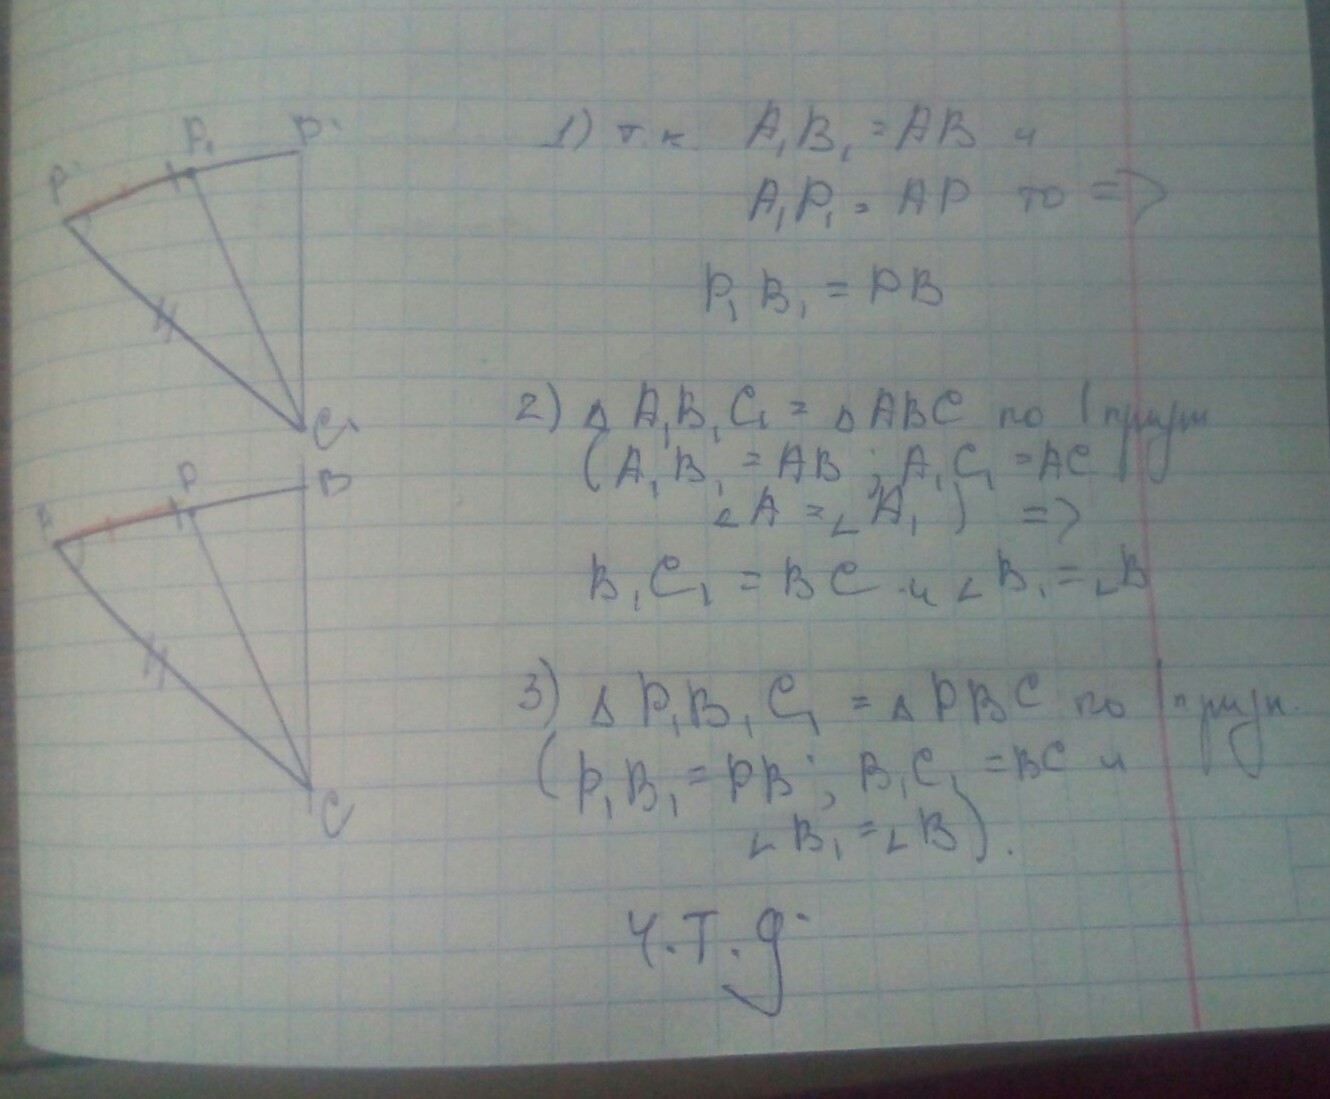 P₁
C₁
P
B
A
C
1) т.к A₁B₁ = AB и
A₁P₁ = AP то =>
P₁B₁ = PB
2) △ A₁B₁C₁ = △ ABC по 1 призн
(A₁B₁ = AB ; A₁C₁ = AC
∠A = ∠A₁) =>
B₁C₁ = BC и ∠B₁ = ∠B
3) △ P₁B₁C₁ = △ PBC по 1 призн.
(P₁B₁ = PB ; B₁C₁ = BC и
∠B₁ = ∠B).
Ч.Т.д.